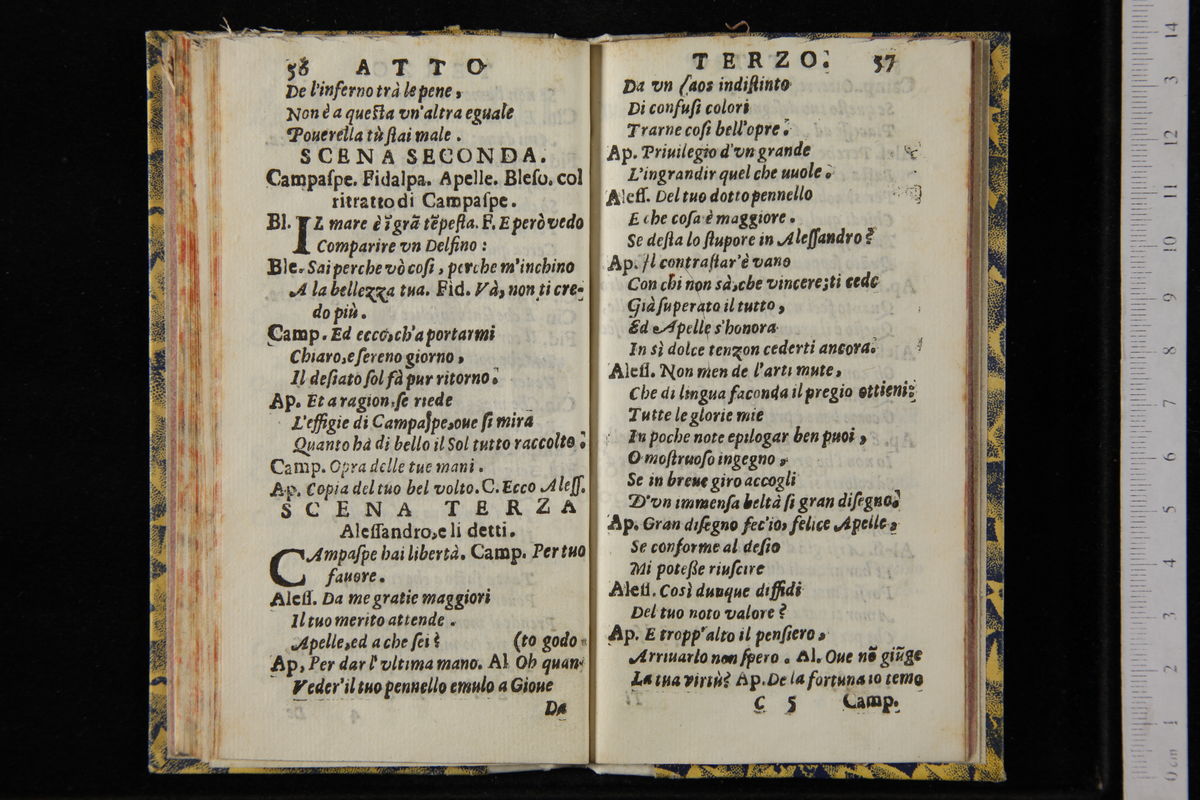 58 ATTO
De l'inferno trà le pene,
Non è a questa vn'altra eguale
Pouerella tù stai male.
SCENA SECONDA.
Campaspe. Fidalpa. Apelle. Bleso. col
ritratto di Campaspe.
Bl. IL mare è ĩ grã tẽpesta. F. E però vedo
Comparire vn Delfino:
Ble. Sai perche vò cosi, perche m'inchino
A la bellezza tua. Fid. Và, non ti cre-
do più.
Camp. Ed ecco, ch'a portarmi
Chiaro, e sereno giorno,
Il desiato sol fà pur ritorno.
Ap. Et a ragion, se riede
L'effigie di Campaspe, oue si mira
Quanto hà di bello il Sol tutto raccolto.
Camp. Opra delle tue mani.
Ap. Copia del tuo bel volto. C. Ecco Aless.
SCENA TERZA
Alessandro, e li detti.
CAmpaspe hai libertà. Camp. Per tuo
fauore.
Aless. Da me gratie maggiori
Il tuo merito attende.
Apelle, ed a che sei? (to godo
Ap, Per dar l'vltima mano. Al Oh quan-
Veder'il tuo pennello emulo a Gioue
Da
TERZO. 57
Da vn Caos indistinto
Di confusi colori
Trarne cosi bell'opre.
Ap. Priuilegio d'vn grande
L'ingrandir quel che uuole.
Aless. Del tuo dotto pennello
E che cosa è maggiore.
Se desta lo stupore in Alessandro?
Ap. Il contrastar'è vano
Con chi non sà, che vincere; ti cede
Già superato il tutto,
Ed Apelle s'honora
In sì dolce tenzon cederti ancora.
Aless. Non men de l'arti mute,
Che di lingua faconda il pregio ottieni:
Tutte le glorie mie
In poche note epilogar ben puoi,
O mostruoso ingegno,
Se in breue giro accogli
D'vn immensa beltà si gran disegno.
Ap. Gran disegno fec'io, felice Apelle,
Se conforme al desio
Mi potesse riuscire
Aless. Così dunque diffidi
Del tuo noto valore?
Ap. E tropp'alto il pensiero,
Arriuarlo non spero. Al. Oue nõ giũge
La tua virtù? Ap. De la fortuna io temo
C 5 Camp.